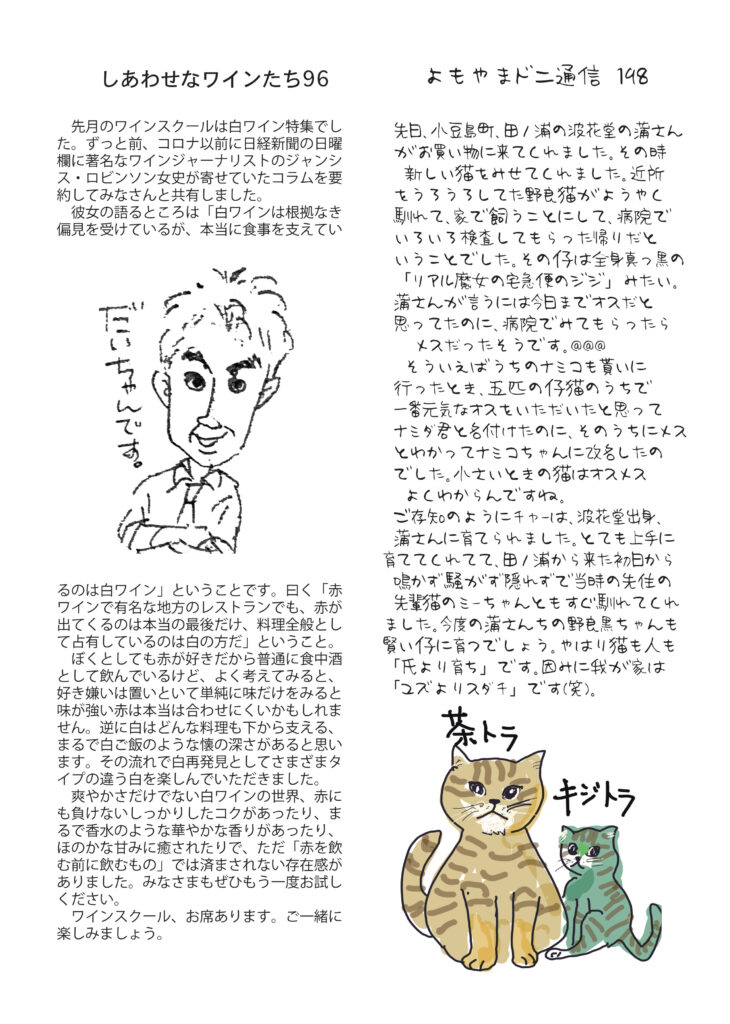 しあわせなワインたち96
　先月のワインスクールは白ワイン特集でし
た。ずっと前、コロナ以前に日経新聞の日曜
欄に著名なワインジャーナリストのジャンシ
ス・ロビンソン女史が寄せていたコラムを要
約してみなさんと共有しました。
　彼女の語るところは「白ワインは根拠なき
偏見を受けているが、本当に食事を支えてい
だいちゃんです。
るのは白ワイン」ということです。曰く「赤
ワインで有名な地方のレストランでも、赤が
出てくるのは本当の最後だけ、料理全般とし
て占有しているのは白の方だ」ということ。
　ぼくとしても赤が好きだから普通に食中酒
として飲んでいるけど、よく考えてみると、
好き嫌いは置いといて単純に味だけをみると
味が強い赤は本当は合わせにくいかもしれま
せん。逆に白はどんな料理も下から支える、
まるで白ご飯のような懐の深さがあると思い
ます。その流れで白再発見としてさまざまタ
イプの違う白を楽しんでいただきました。
　爽やかさだけでない白ワインの世界、赤に
も負けないしっかりしたコクがあったり、ま
るで香水のような華やかな香りがあったり、
ほのかな甘みに癒されたりで、ただ「赤を飲
む前に飲むもの」では済まされない存在感が
ありました。みなさまもぜひもう一度お試し
ください。
　ワインスクール、お席あります。ご一緒に
楽しみましょう。
よもやまドニ通信 198
先日、小豆島町、田ノ浦の波花堂の蒲さん
がお買い物に来てくれました。その時
新しい猫をみせてくれました。近所
をうろうろしてた野良猫がようやく
馴れて、家で飼うことにして、病院で
いろいろ検査してもらった帰りだと
いうことでした。その仔は全身真っ黒の
「リアル魔女の宅急便のジジ」みたい。
蒲さんが言うには今日までオスだと
思ってたのに、病院でみてもらったら
メスだったそうです。@@@
そういえばうちのナミコも貰いに
行ったとき、五匹の仔猫のうちで
一番元気なオスをいただいたと思って
ナミダ君と名付けたのに、そのうちにメス
とわかってナミコちゃんに改名したの
でした。小さいときの猫はオスメス
よくわからんですね。
ご存知のようにチャーは、波花堂出身、
蒲さんに育てられました。とても上手に
育ててくれてて、田ノ浦から来た初日から
鳴かず騒がず隠れずで当時の先住の
先輩猫のミーちゃんともすぐ馴れてくれ
ました。今度の蒲さんちの野良黒ちゃんも
賢い仔に育つでしょう。やはり猫も人も
「氏より育ち」です。因みに我が家は
「ユズよりスダチ」です(笑)。
茶トラ
キジトラ